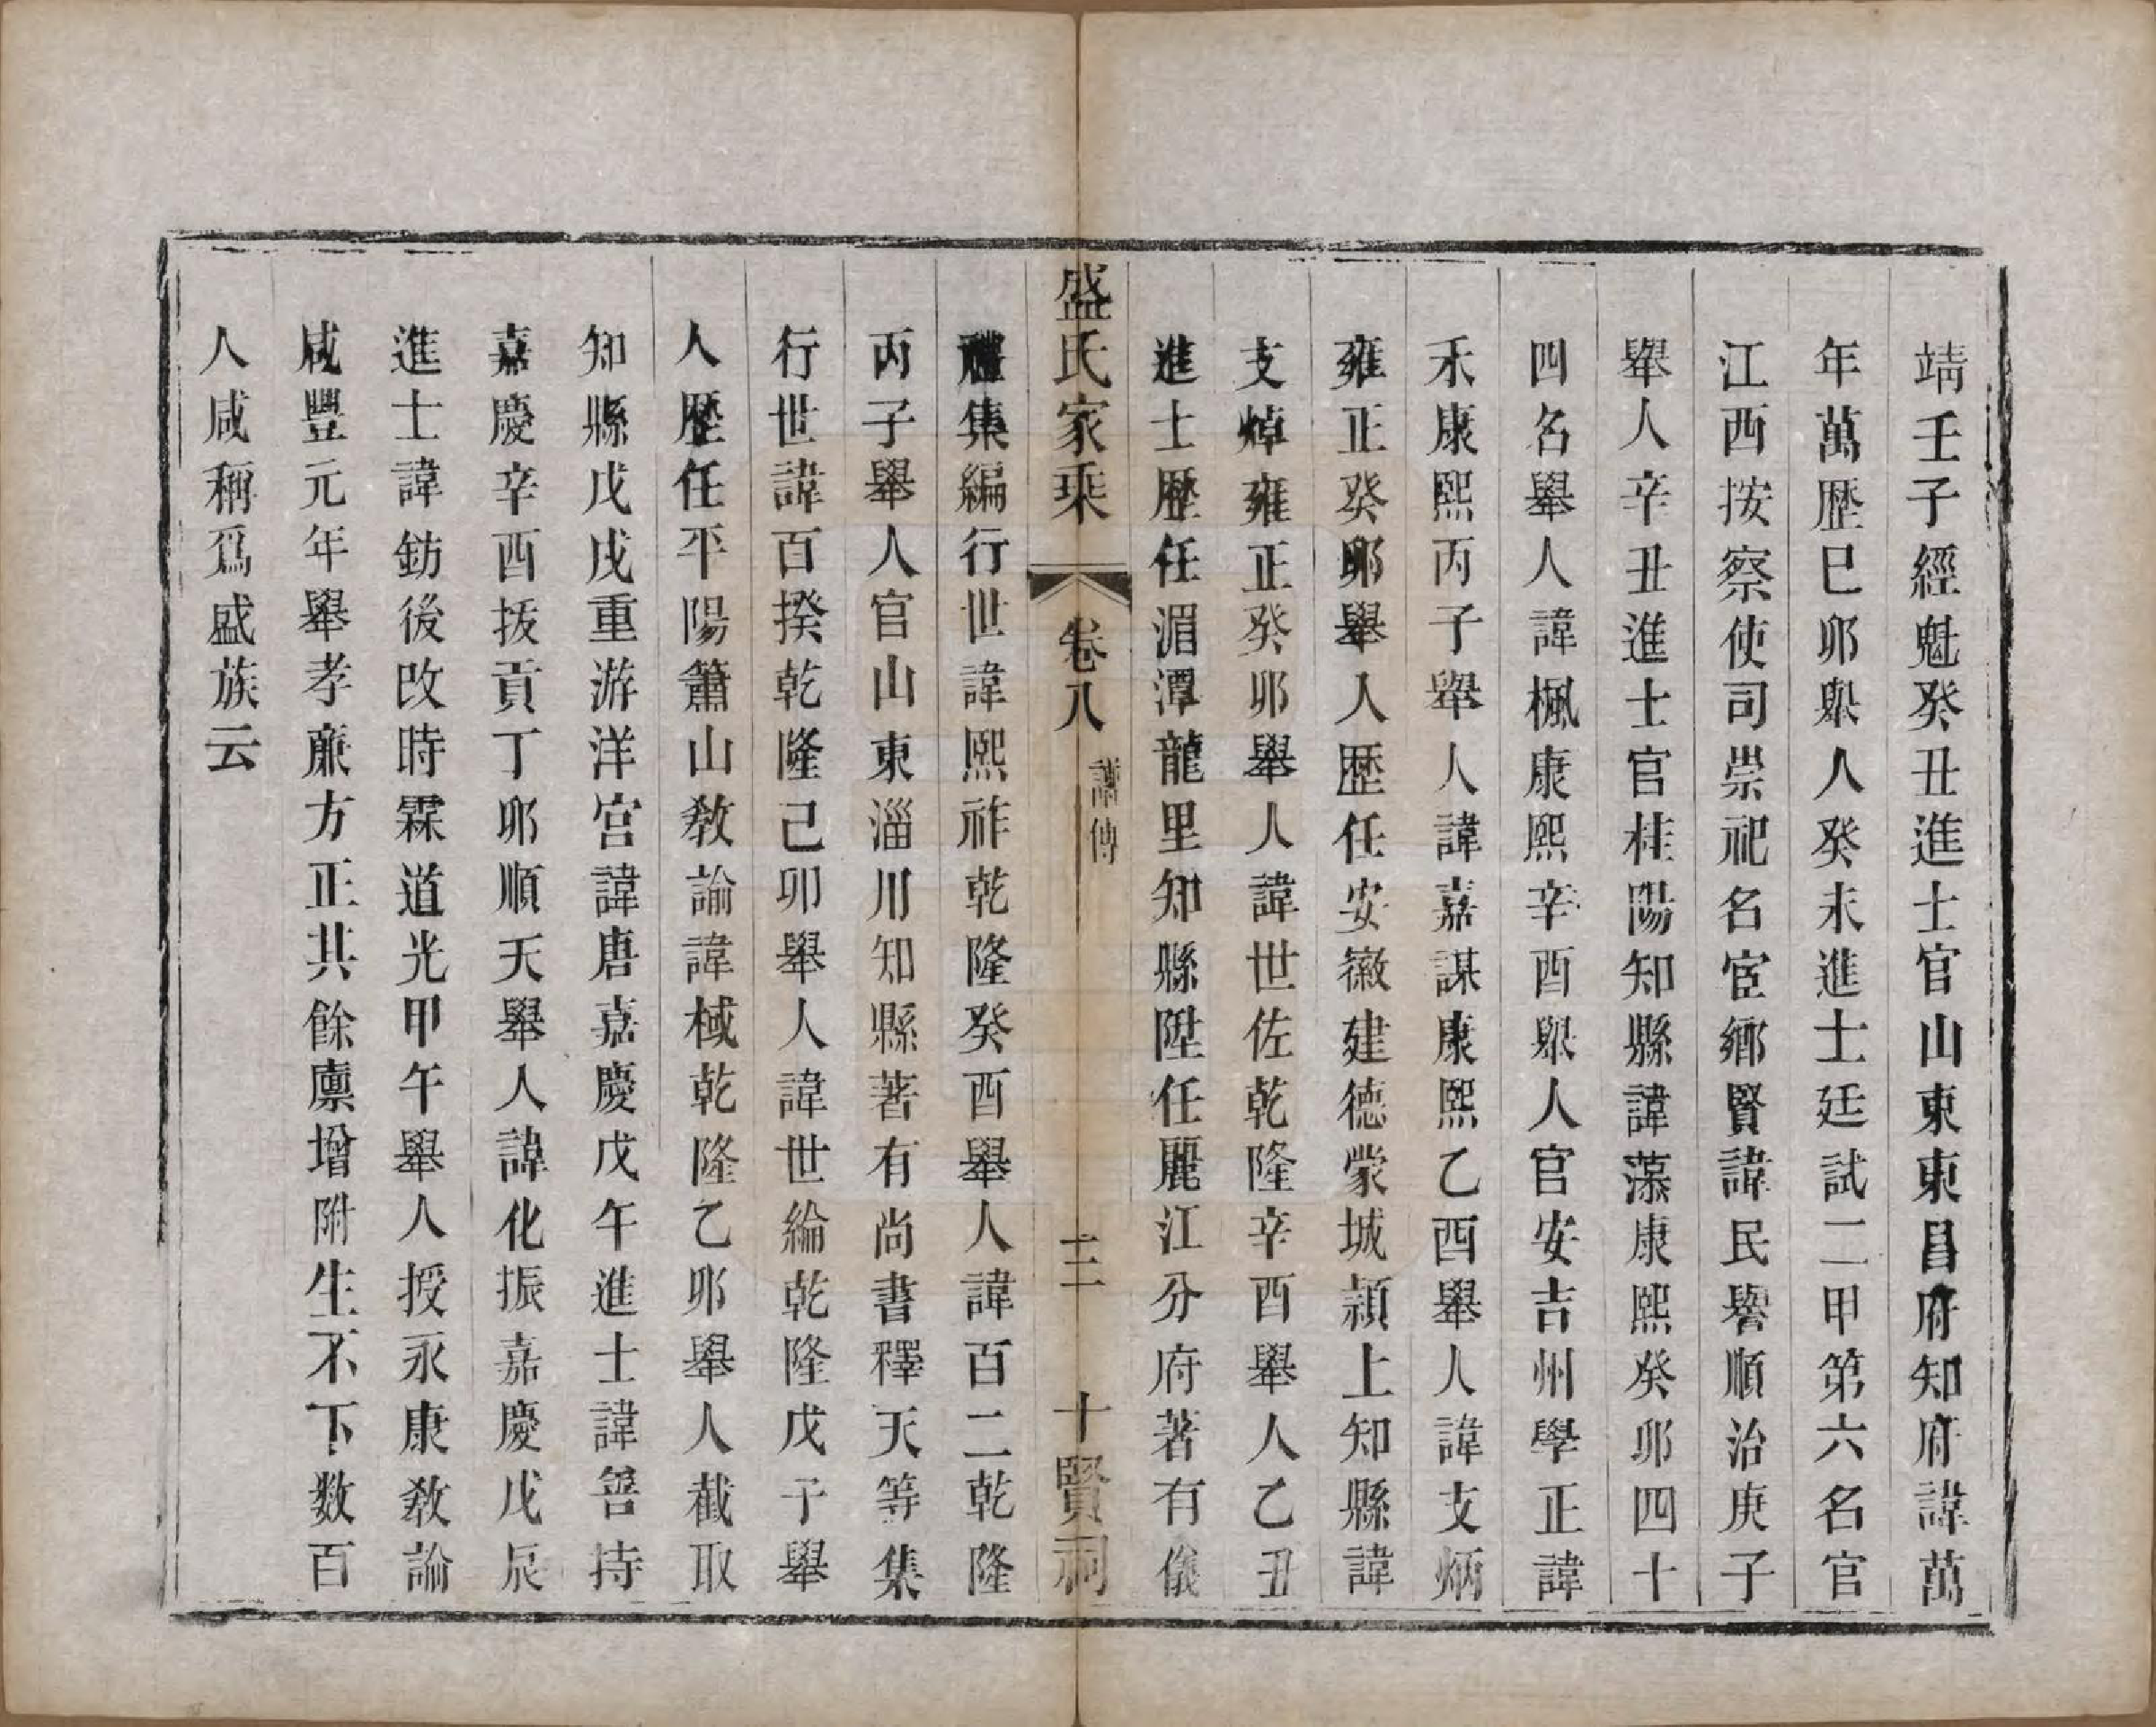 靖壬子經魁癸丑進士官山東東昌府知府諱萬
年萬歴巳卯舉人癸未進士廷試二甲第六名官
江西按察使司崇祀名宦鄉賢諱民譽順治庚子
舉人辛丑進士官桂陽知縣諱藻康熙癸卯四十
四名舉人諱楓康熙辛酉舉人官安吉州學正諱
禾康熙丙子舉人諱嘉謀康熙乙酉舉人諱支炳
雍正癸卯舉人歴任安徽建德蒙城潁上知縣諱
支焯雍正癸卯舉人諱世佐乾隆辛酉舉人乙丑
進士歴任湄潭龍里知縣陞任麗江分府著有儀
盛氏家乘 卷八 譜傳 十三 十賢祠
禮集編行世諱熙祚乾隆癸酉舉人諱百二乾隆
丙子舉人官山東淄川知縣著有尚書釋天等集
行世諱百揆乾隆己卯舉人諱世綸乾隆戊子舉
人歴任平陽蕭山敎諭諱棫乾隆乙卯舉人截取
知縣戊戌重游洋宫諱唐嘉慶戊午進士諱善持
嘉慶辛酉拔貢丁卯順天舉人諱化振嘉慶戊辰
進士諱鈁後改時霖道光甲午舉人授永康敎諭
咸豐元年舉孝廉方正共餘廩增附生不下数百
人咸稱爲盛族云